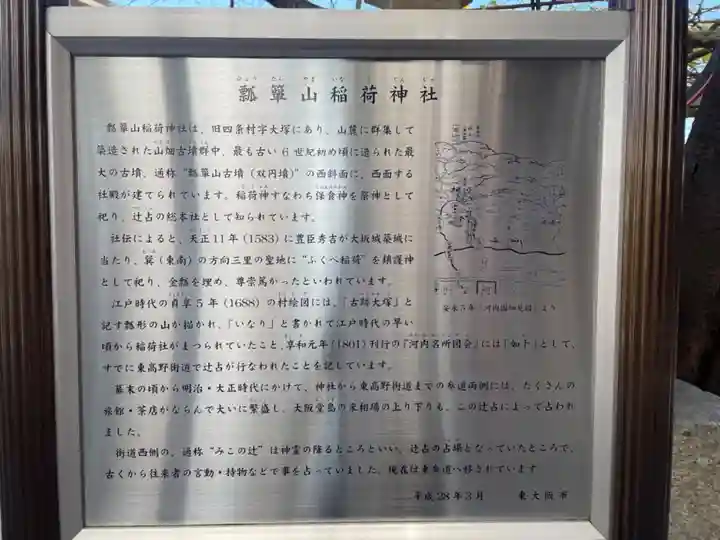 瓢簞山稲荷神社
瓢簞山稲荷神社は、旧四条村字大塚にあり、山麓に群集して
築造された山畑古墳群中、最も古い6世紀初め頃に造られた最
大の古墳、通称“瓢簞山古墳（双円墳）”の西斜面に、西面する
社殿が建てられています。稲荷神すなわち保食神を祭神として
祀り、辻占の総本社として知られています。
社伝によると、天正11年（1583）に豊臣秀吉が大坂城築城に
当たり、巽（東南）の方向三里の聖地に“ふくべ稲荷”を鎮護神
として祀り、金瓢を埋め、尊崇篤かったといわれています。
江戸時代の貞享5年（1688）の村絵図には、「古跡大塚」と
記す瓢形の山が描かれ、「いなり」と書かれて江戸時代の早い
頃から稲荷社がまつられていたこと、享和元年（1801）刊行の『河内名所図会』には「如ト」として、
すでに東高野街道で辻占が行なわれたことを記しています。
幕末の頃から明治・大正時代にかけて、神社から東高野街道までの参道両側には、たくさんの
旅館・茶店がならんで大いに繁盛し、大阪堂島の米相場の上り下りも、この辻占によって占われ
ました。
街道西側の、通称“みこの辻”は神霊の降るところといい、辻占の占場となっていたところで、
古くから往来者の言動・持物などで事を占っていました。現在は東参道へ移されています
平成28年3月 東大阪市